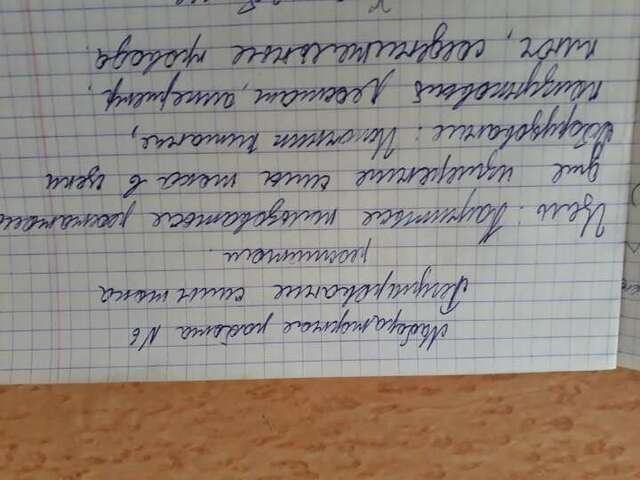 Лабораторное работа N6
Регулирование силы тока
реостатом.
Цель: Научиться пользоваться реостатом
для измерение силы тока в цепи
Оборудование: Источник питание,
ползунковый реостат, амперметр,
ключ, соединительные провода.